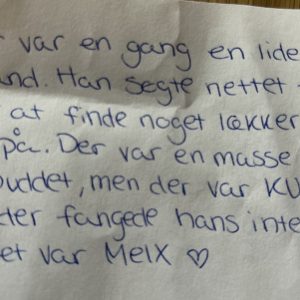 var en gang en lide
nd. Han søgte nettet
at finde noget lækker
på. Der var en masse
uddet, men der var KU
ter fangede hans inte
et var MelX ♡